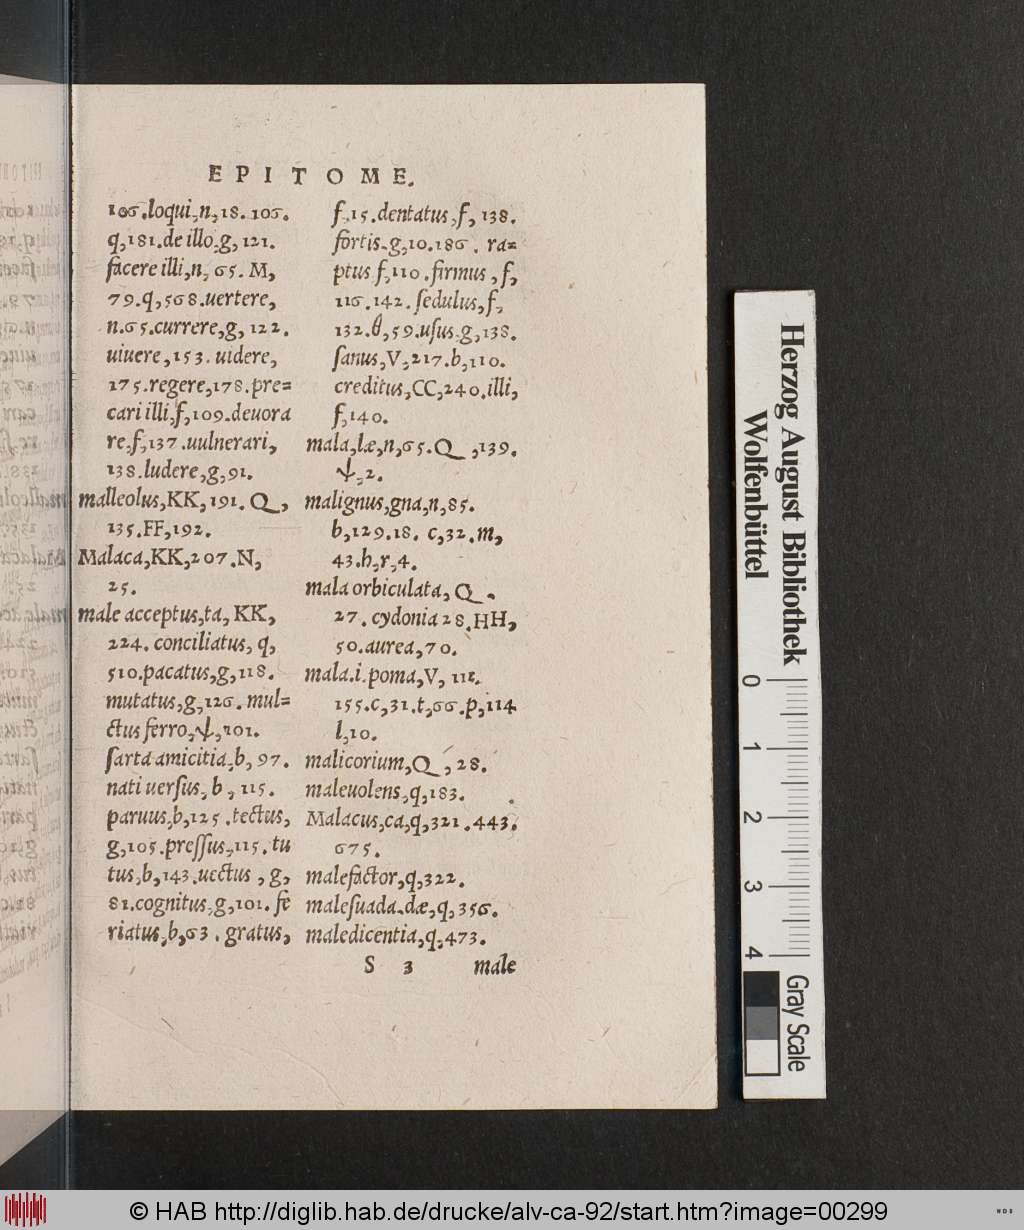 EPITOME.
106.loqui,n,18.106.
q,181.de illo,g,121.
facere illi,n,65.M,
79.q,568.uertere,
n.65.currere,g,122.
uiuere,153.uidere,
175.regere,178.pre=
cari illi,f,109.deuora
re,f,137.uulnerari,
138.ludere,g,91.
malleolus,KK,191.Q,
135.FF,192.
Malaca,KK,207.N,
25.
male acceptus,ta,KK,
224.conciliatus,q,
510.pacatus,g,118.
mutatus,g,126.mul=
ctus ferro,ψ,101.
sarta amicitia,b,97.
nati uersus,b,115.
paruus,b,125.tectus,
g,105.pressus,115.tu
tus,b,143.uectus,g,
81.cognitus,g,101.fe
riatus,b,63.gratus,
f,15.dentatus,f,138.
fortis.g,10.186.ra=
ptus f,110.firmus,f,
116.142.sedulus,f,
132.θ,59.usus.g,138.
sanus,V,217.b,110.
creditus,CC,240.illi,
f,140.
mala,læ,n,65.Q,139.
ψ,2.
malignus,gna,n,85.
b,129.18.c,32.m,
43.h,r,4.
mala orbiculata,Q.
27.cydonia 28.HH,
50.aurea,70.
mala.i.poma,V,
155.c,31.t,66.p,114
l,10.
malicorium,Q,28.
maleuolens,q,183.
Malacus,ca,q,321.443.
675.
malefactor,q,322.
malesuada.dæ,q,356.
maledicentia,q,473.
S 3 male
Herzog August Bibliothek
Wolfenbüttel
0 1 2 3 4
Gray Scale
© HAB http://diglib.hab.de/drucke/alv-ca-92/start.htm?image=00299